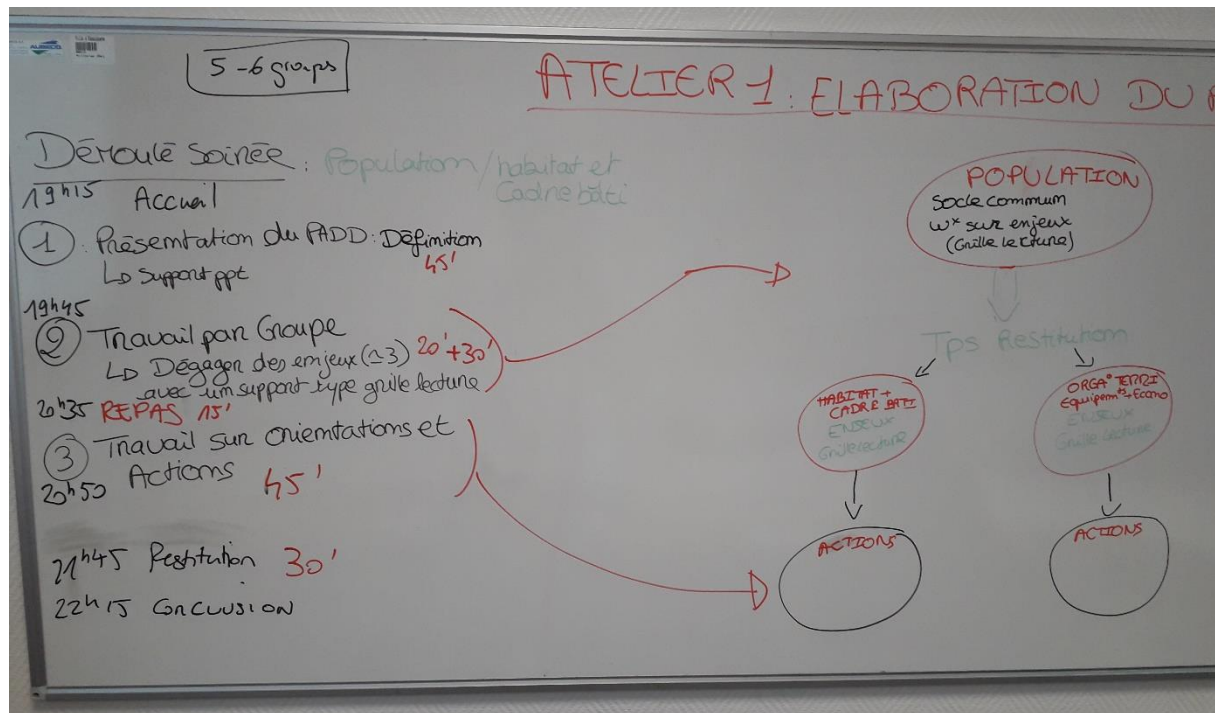 ALBECO
5-6 groups
ATELIER 1: ELABORATION DU
Déroulé Soirée: Population/habitat et
Cadre bâti
19h15 Accueil
1: Présentation du PADD: Définition
↳ Support ppt 45'
19h45
2 Travail par Groupe
↳ Dégager des enjeux (≃3) 20'+30'
avec un support type grille lecture
20h35 REPAS 15'
3 Travail sur orientations et
20h50 Actions 45'
21h45 Restitution 30'
22h15 CONCLUSION
POPULATION
Socle commun
wx sur enjeux
(Grille lecture)
Tps Restitution
HABITAT +
CADRE BATI
ENJEUX
Grille lecture
ORGA° TERRI
Equipemts + Econo
ENJEUX
Grille lecture
ACTIONS
ACTIONS